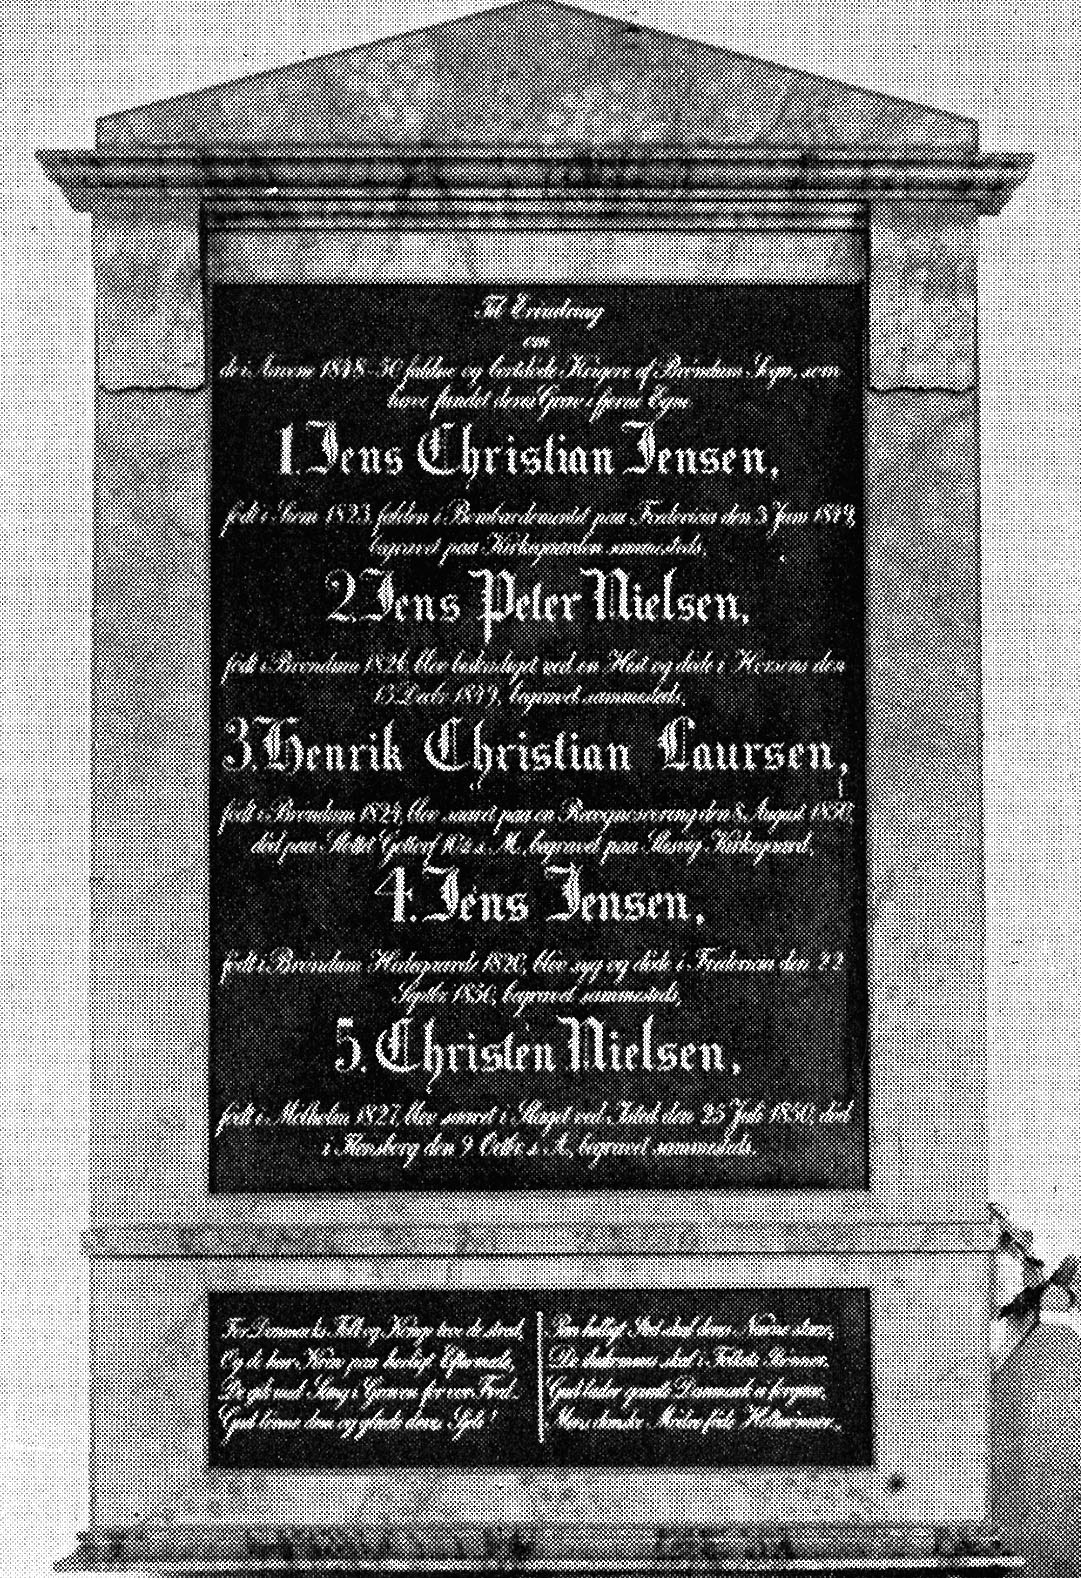 Til Erindring
om
de i Aarene 1848-50 faldne og bortdøde Krigere af Brøndum Sogn, som
have fundet deres Grav i fjerne Egne
1. Jens Christian Jensen,
født i Siem 1823 falden i Bombardementet paa Fredericia den 3 Juni 1849,
begravet paa Kirkegaarden sammesteds.
2. Jens Peter Nielsen,
født i Brøndum 1826, blev ved en Hest og døde i Horsens den
13 Decbr 1849, begravet sammesteds.
3. Henrik Christian Laursen,
født i Brøndum 1824, blev saaret paa en Recognoscering den 8 August 1850,
død paa Slottet Gottorf s. M., begravet paa Slesvig Kirkegaard.
4. Jens Jensen,
født i Brøndum Hedegaarde 1820, blev syg og døde i Fredericia den 22
Septbr 1850, begravet sammesteds,
5. Christen Nielsen,
født i Mølholm 1827, blev saaret i Slaget ved Isted den 25 Juli 1850, død
i Flensborg den 9 Octbr s. A., begravet sammesteds.
For Danmarks Folk og Konge tro de stred,
Og de har Krone paa herligt Eftermæle,
De gik med Sang i Graven for vor Fred.
Gud lønne dem og glæde deres Sjæle!
Paa helligt Sted skal deres Navne staae,
De skal i Folkets Minner.
Gud lader gamle Danmark ei forgaae,
Mens danske Mødre føde